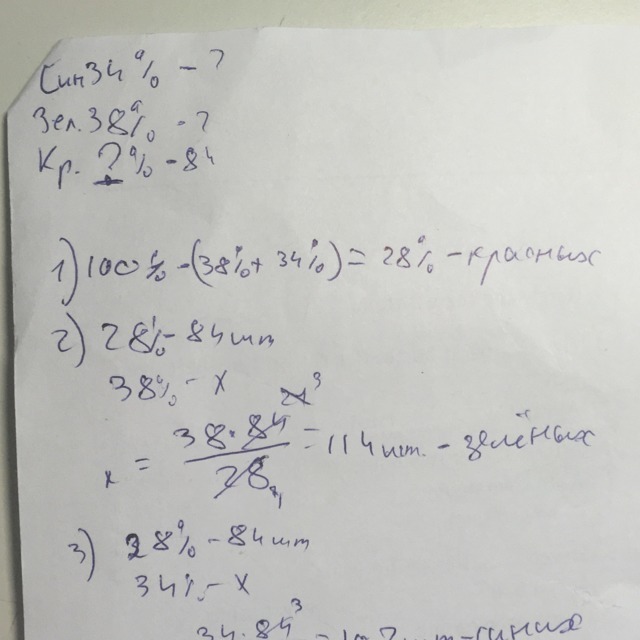 Син 34% - ?
Зел. 38% - ?
Кр. ?% - 84
1) 100% - (38% + 34%) = 28% - красных
2) 28% - 84 шт
38% - х
х = 38 · 84 3 / 28 1 = 114 шт. - зелёных
3) 28% - 84 шт
34% - х
34 · 84 3 = 102 шт - синих